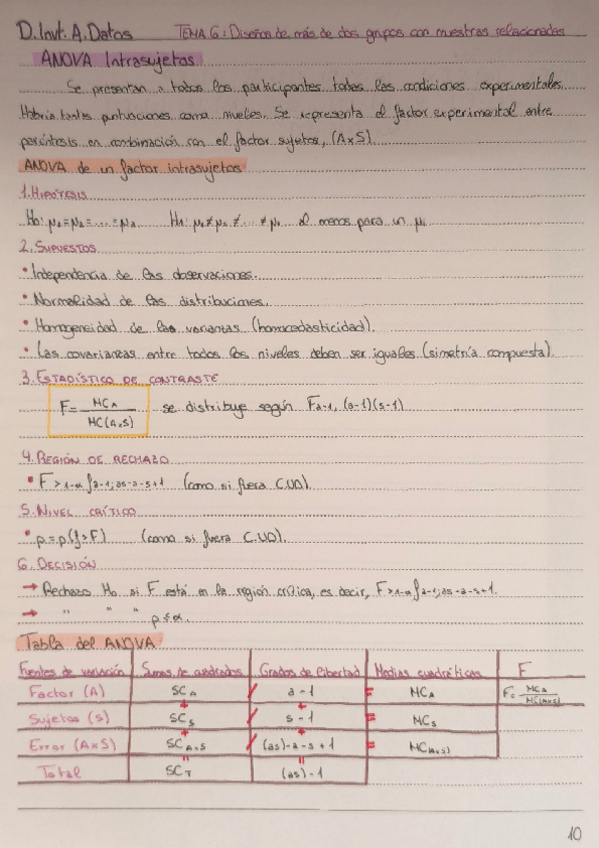 D. Invt. A. Datos TEMA 6: Diseños de más de dos grupos con muestras relacionadas
ANOVA Intrasujetos
Se presentan a todos los participantes todas las condiciones experimentales.
Habría tantas puntuaciones como niveles. Se representa el factor experimental entre
paréntesis en combinación con el factor sujetos, (AxS).
ANOVA de un factor intrasujetos
1. HIPÓTESIS
H₀: μ₁=μ₂=...=μₐ. H₁: μ₁≠μ₂≠...≠μₐ al menos para un μ
2. SUPUESTOS
• Independencia de las observaciones.
• Normalidad de las distribuciones.
• Homogeneidad de las varianzas (homocedasticidad).
• Las covarianzas entre todos los niveles deben ser iguales (simetría compuesta).
3. ESTADÍSTICO DE CONTRASTE
F = MCA / MC(AxS) se distribuye según Fa-1, (a-1)(s-1)
4. REGIÓN DE RECHAZO
• F > 1-α fa-1; as-a-s+1 (como si fuera C.UD).
5. NIVEL CRÍTICO
• p = p(f>F) (como si fuera C.UD).
6. DECISIÓN
→ Rechazo H₀ si F está en la región crítica, es decir, F > 1-α fa-1; as-a-s+1.
→ " " " p≤α.
Tabla del ANOVA
Fuentes de variación Sumas de cuadrados Grados de libertad Medias cuadráticas F
Factor (A) SCA / a-1 = MCA F = MCA / MC(AxS)
+ +
Sujetos (S) SCS / s-1 = MCS
+ +
Error (AxS) SCAxS / (as)-a-s+1 = MC(AxS)
= =
Total SCT (as)-1
10